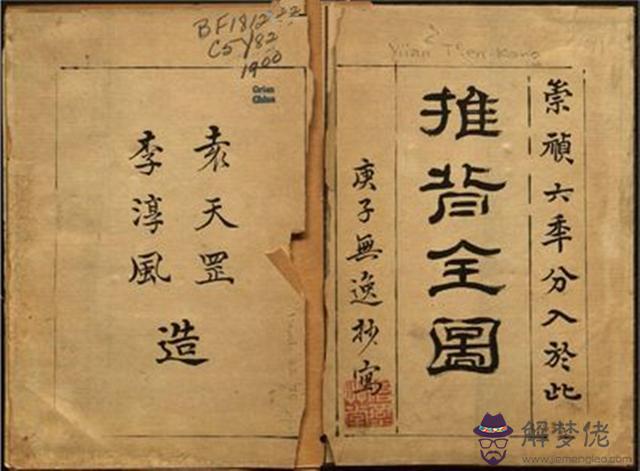 崇禎六年分入於此
推背全圖
庚子無逸抄寫
袁天罡
李淳風
造
BF1812
C5Y82
1900
Orien
China
Yüan T'ien-kang
解梦佬
www.jiemenglao.com